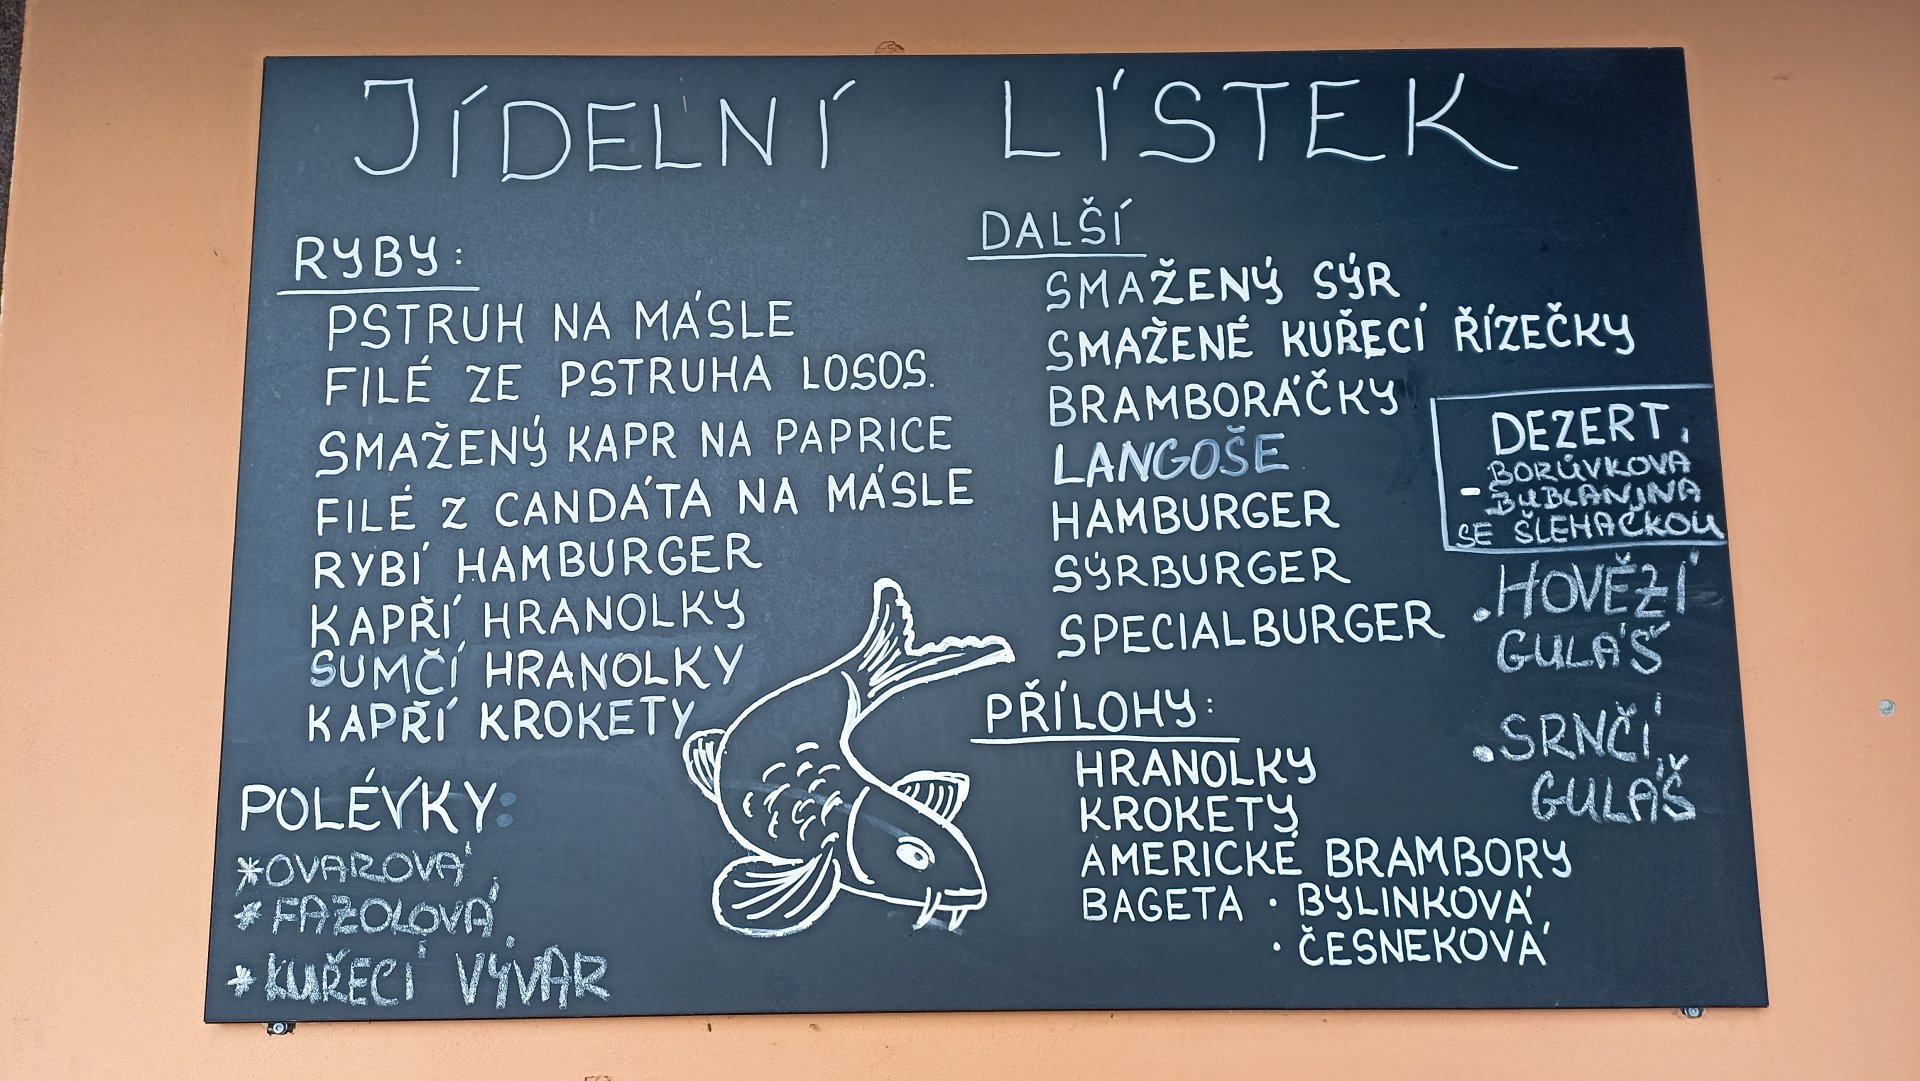 JÍDELNÍ LÍSTEK
RYBY:
PSTRUH NA MÁSLE
FILÉ ZE PSTRUHA LOSOS.
SMAŽENÝ KAPR NA PAPRICE
FILÉ Z CANDÁTA NA MÁSLE
RYBÍ HAMBURGER
KAPŘÍ HRANOLKY
SUMČÍ HRANOLKY
KAPŘÍ KROKETY
POLÉVKY:
*OVAROVÁ
*FAZOLOVÁ
*KUŘECÍ VÝVAR
DALŠÍ
SMAŽENÝ SÝR
SMAŽENÉ KUŘECÍ ŘÍZEČKY
BRAMBORÁČKY
LANGOŠE
HAMBURGER
SÝRBURGER
SPECIALBURGER
PŘÍLOHY:
HRANOLKY
KROKETY
AMERICKÉ BRAMBORY
BAGETA · BYLINKOVÁ
· ČESNEKOVÁ
DEZERT,
- BORŮVKOVA
BUBLANINA
SE ŠLEHAČKOU
·HOVĚZÍ
GULÁŠ
·SRNČÍ
GULÁŠ